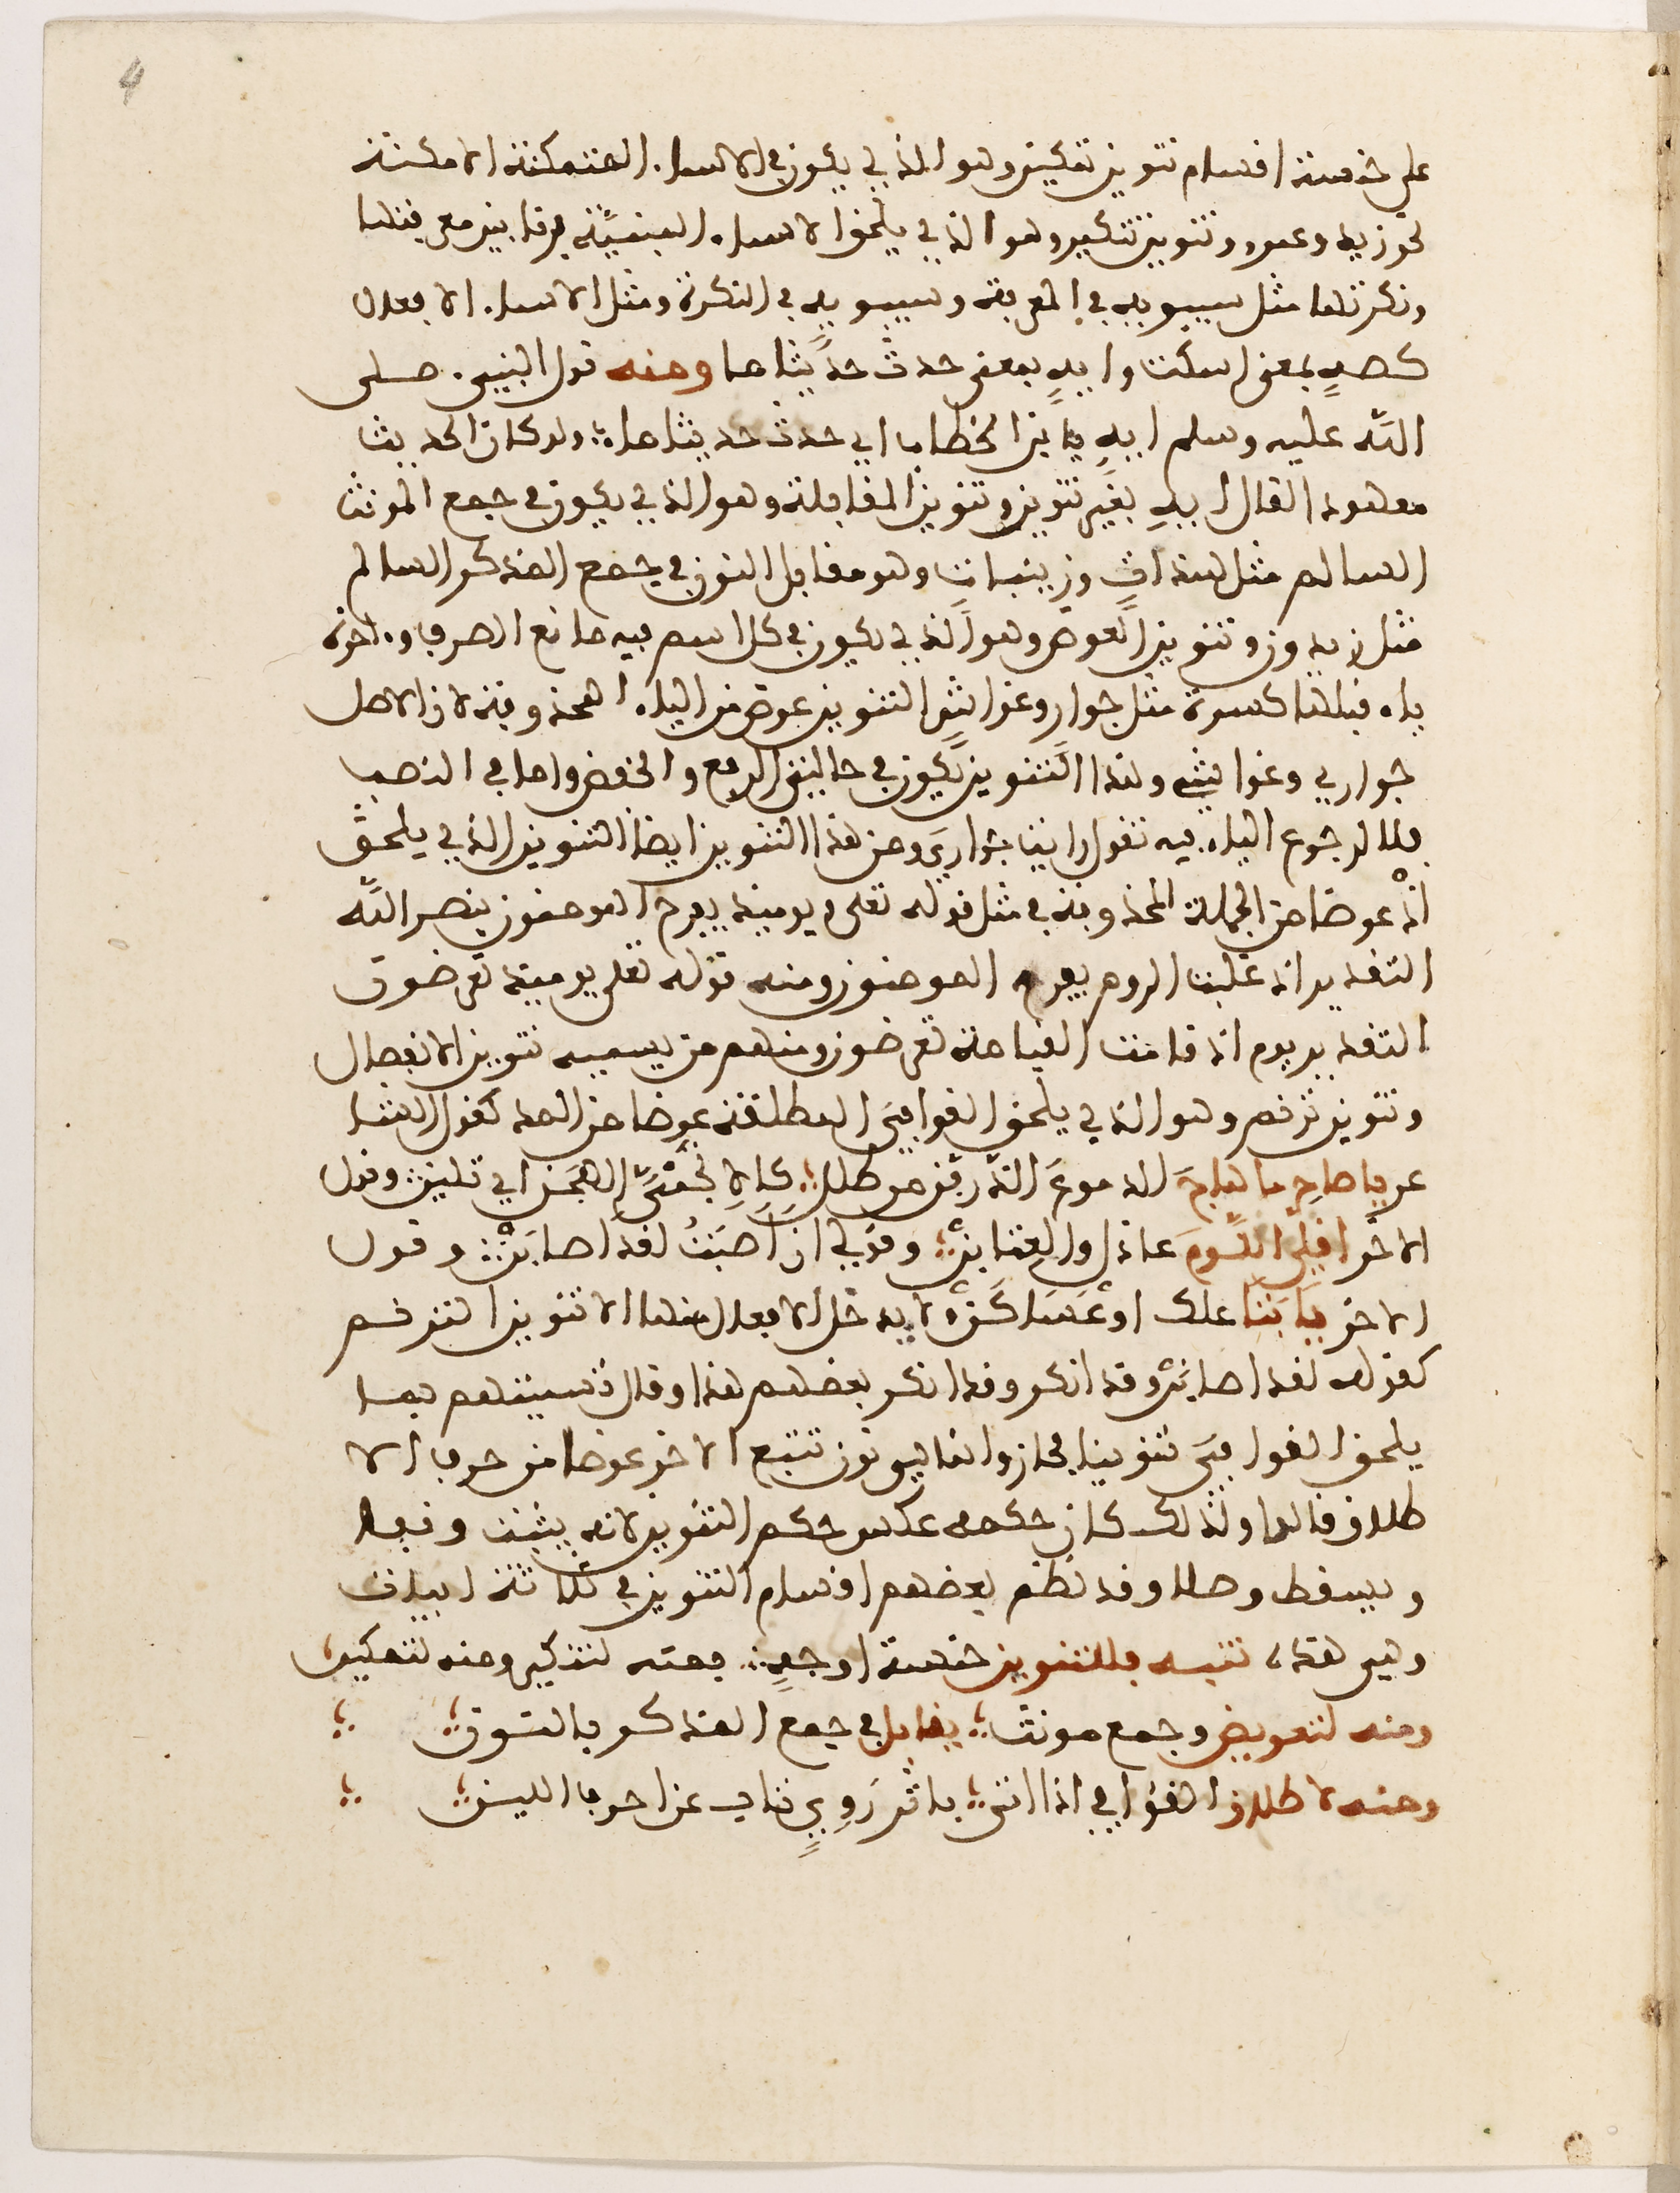 4
على خمسة اقسام تنوين تمكين وهو الذي يكون في الاسماء المتمكنة الامكنة
نحو زيد وعمرو وتنوين تنكير وهو الذي يلحق الاسماء المبنيّة فرقا بين معرفتها
ونكرتها مثل سيبويه في المعرفة وسيبويهٍ في النكرة ومثل الاسماء الافعال
كصهٍ بمعنى اسكت وايهٍ بمعنى حدث حديثا ما ومنه قول النبيء صلى
الله عليه وسلم ايهٍ يا بن الخطاب اي حدث حديثا ما ولو كان الحديث
معهودا لقال ايهِ بغير تنوين وتنوين المقابلة وهو الذي يكون في جمع المونث
السالم مثل هنداتٍ وزينباتٍ وهو مقابل النون في جمع المذكر السالم
مثل زيدون وتنوين العوض وهو الذي يكون في كل اسم فيه مانع الصرف واخره
ياء قبلها كسرة مثل جوارٍ وغواشٍ التنوين عوض من الياء المحذوفة لان الاصل
جواري وغواشي وهذا التنوين يكون في حالتي الرفع والخفض واما في النصب
فلا لرجوع الياء فيه تقول رايت جواريَ ومن هذا التنوين ايضا التنوين الذي يلحق
اذْ عوضا من الجملة المحذوفة في مثل قوله تعلى ويوميذ يفرح المومنون بنصر الله
التقدير اذ غلبت الروم يفرح المومنون ومنه قوله تعلى يوميذ تعرضون
التقدير يوم اذ قامت القيامة تعرضون ومنهم من يسميه تنوين الانفصال
وتنوين ترنم وهو الذي يلحق القوافيَ المطلقة عوضا من المد كقول الشا
عر يا صاحِ ما هاجَ الدموعَ الذرفن من طلل كالاتحميَّ انهجن اي تلين وقول
الاخر اقلي اللومَ عاذل والعتابنْ وقولي ان اصبتُ لقد اصابنْ وقول
الاخر يا ابتا علك او عساكنْ لا يدخل الافعال منها الا تنوين الترنم
كقوله لقد اصابنْ وقد انكر وقد انكر بعضهم هذا وقال تسميتهم بما
يلحق القوافيَ تنوينا مجاز وانما هو نون تتبع الاخر عوضا من حرف الا
طلاق قالوا ولذلك كان حكمه عكس حكم التنوين لانه يثبت وقفا
ويسقط وصلا وقد نظم بعضهم اقسام التنوين في ثلاثة ابيات
وهي هذه تنبيه فللتنوين خمسة اوجهٍ فمنه لتنكير ومنه لتمكين
ومنه لتعويض وجمع مونث يقابل في جمع المذكر بالنون
ومنه لاطلاق القوافي اذا اتى باثر رَوِيٍّ ناب عن احرف اللين